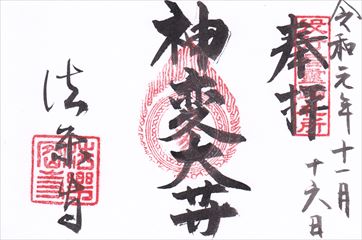 令和元年十一月
十六日
奉拝
神変大𦬇
法楽寺